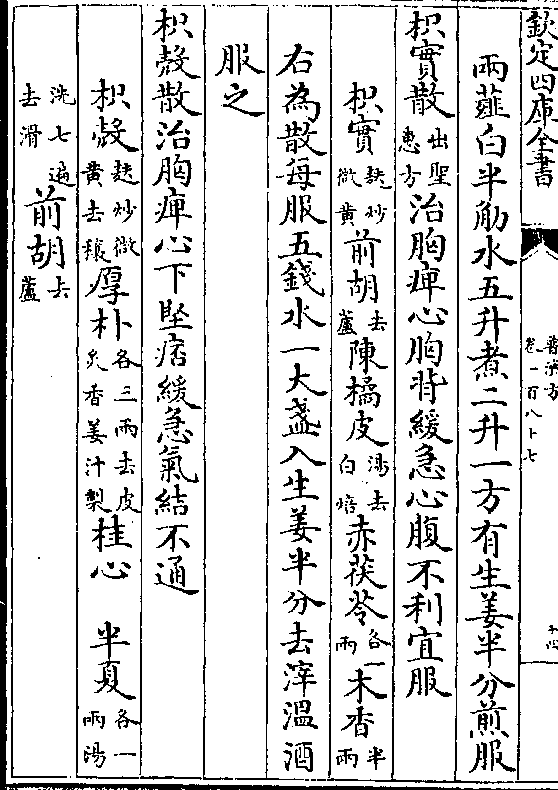 欽定四庫全書
普濟方
卷一百八十七
十四
兩薤白半觔水五升煮二升一方有生姜半分煎服
枳實散出聖惠方治胸痺心胸時緩急心腹不利宜服
枳實麩炒微黄前胡去蘆陳橘皮湯去白焙赤茯苓各一兩木香半兩
右為散每服五錢水一大盞入生姜半分去滓溫酒
服之
枳殻散治胸痺心下堅痞緩急氣結不通
枳殻麩炒微黄去穰厚朴各三兩去皮炙香姜汁製桂心 半夏各一兩湯
洗七遍去滑前胡去蘆